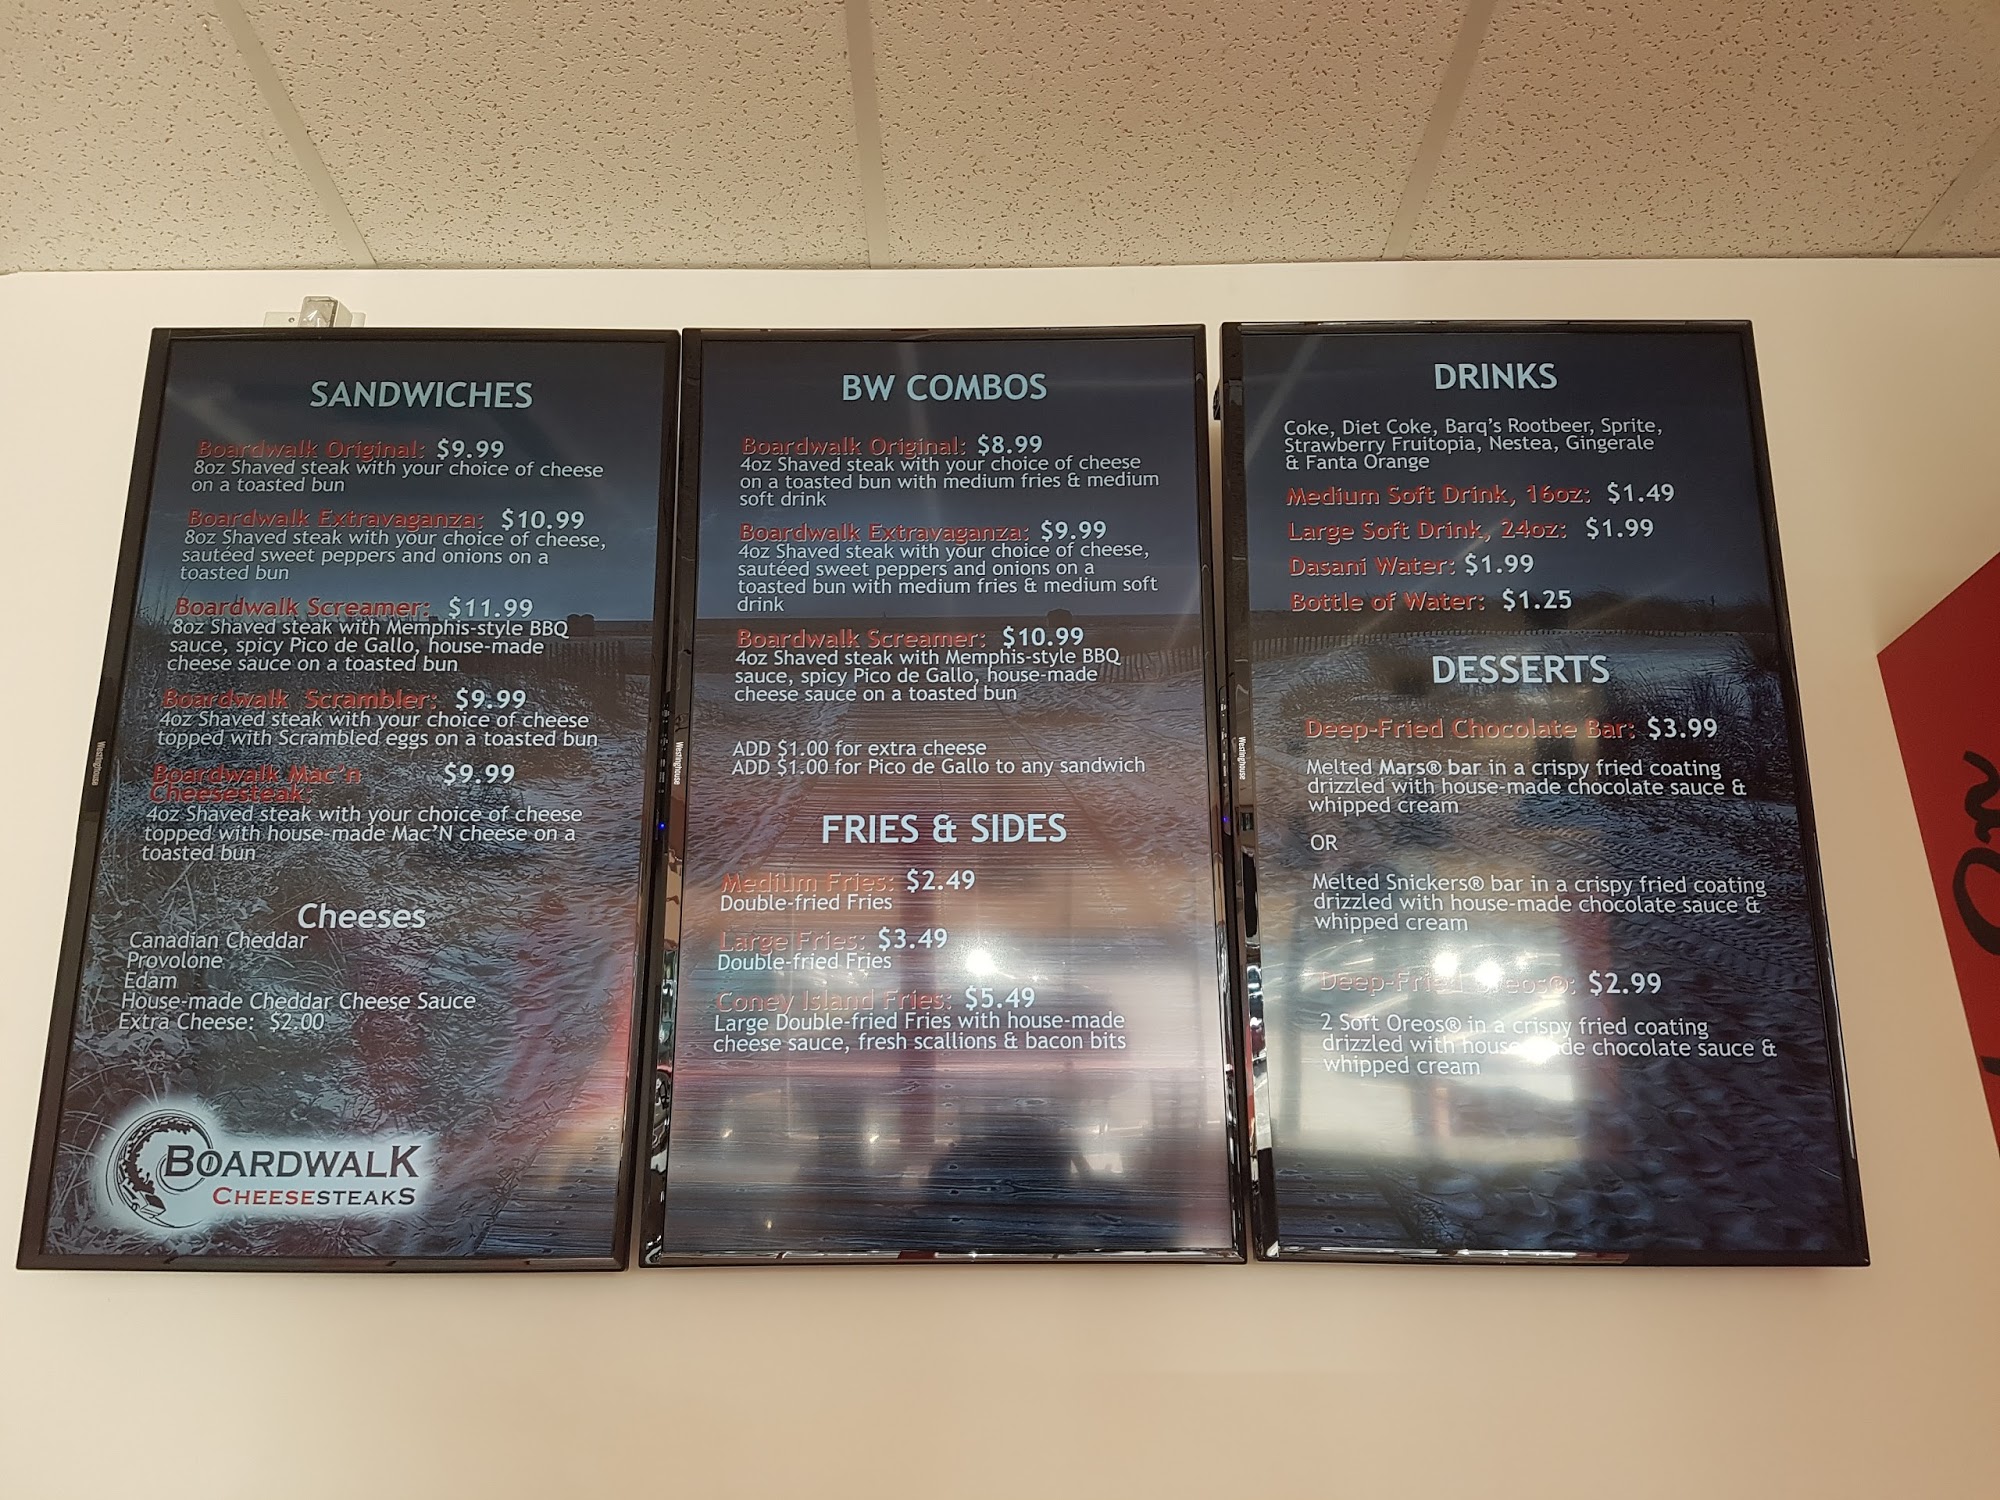 SANDWICHES
Boardwalk Original: $9.99
8oz Shaved steak with your choice of cheese
on a toasted bun
Boardwalk Extravaganza: $10.99
8oz Shaved steak with your choice of cheese,
sautéed sweet peppers and onions on a
toasted bun
Boardwalk Screamer: $11.99
8oz Shaved steak with Memphis-style BBQ
sauce, spicy Pico de Gallo, house-made
cheese sauce on a toasted bun
Boardwalk Scrambler: $9.99
4oz Shaved steak with your choice of cheese
topped with Scrambled eggs on a toasted bun
Boardwalk Mac'n $9.99
Cheesesteak:
4oz Shaved steak with your choice of cheese
topped with house-made Mac'N cheese on a
toasted bun
Cheeses
Canadian Cheddar
Provolone
Edam
House-made Cheddar Cheese Sauce
Extra Cheese: $2.00
BOARDWALK
CHEESESTEAKS
Westinghouse
BW COMBOS
Boardwalk Original: $8.99
4oz Shaved steak with your choice of cheese
on a toasted bun with medium fries & medium
soft drink
Boardwalk Extravaganza: $9.99
4oz Shaved steak with your choice of cheese,
sautéed sweet peppers and onions on a
toasted bun with medium fries & medium soft
drink
Boardwalk Screamer: $10.99
4oz Shaved steak with Memphis-style BBQ
sauce, spicy Pico de Gallo, house-made
cheese sauce on a toasted bun
ADD $1.00 for extra cheese
ADD $1.00 for Pico de Gallo to any sandwich
FRIES & SIDES
Medium Fries: $2.49
Double-fried Fries
Large Fries: $3.49
Double-fried Fries
Coney Island Fries: $5.49
Large Double-fried Fries with house-made
cheese sauce, fresh scallions & bacon bits
Westinghouse
DRINKS
Coke, Diet Coke, Barq's Rootbeer, Sprite,
Strawberry Fruitopia, Nestea, Gingerale
& Fanta Orange
Medium Soft Drink, 16oz: $1.49
Large Soft Drink, 24oz: $1.99
Dasani Water: $1.99
Bottle of Water: $1.25
DESSERTS
Deep-Fried Chocolate Bar: $3.99
Melted Mars® bar in a crispy fried coating
drizzled with house-made chocolate sauce &
whipped cream
OR
Melted Snickers® bar in a crispy fried coating
drizzled with house-made chocolate sauce &
whipped cream
Deep-Fried Oreos®: $2.99
2 Soft Oreos® in a crispy fried coating
drizzled with house-made chocolate sauce &
whipped cream
Westinghouse